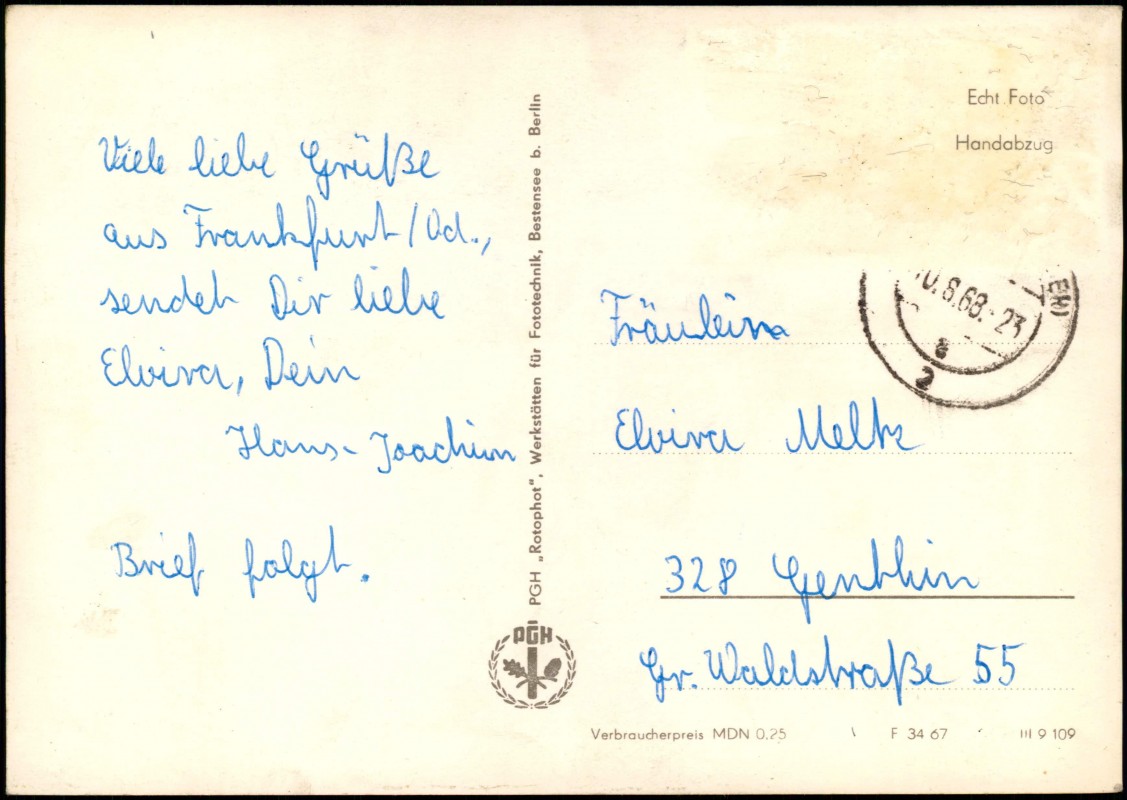 Viele liebe Grüße
aus Frankfurt/Od.,
sendet Dir liebe
Elvira, Dein
Hans-Joachim
Brief folgt.
PGH „Rotophot", Werkstätten für Fototechnik, Bestensee b. Berlin
PGH
Echt Foto
Handabzug
10.8.68.-23
a
2
Fräulein
Elvira
328 Genthin
Gr. Waldstraße 55
Verbraucherpreis MDN 0.25
F 34 67
III 9 109